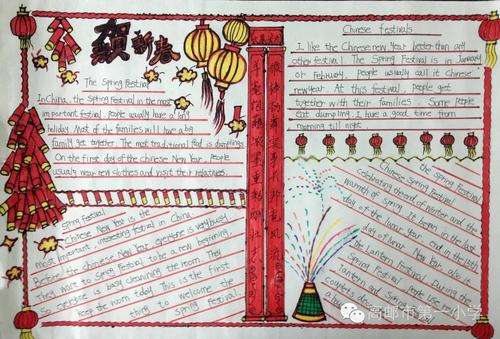 贺新春
The Spring Festival
In China, the Spring Festival is the most
important festival. people usually have a long
holiday. Most of the families will have a big
family get together. The most traditional food is dumplings
On the first day of the Chinese New Year, people
usually wear new clothes and visit their relatives.
Spring Festival
Chinese New Year is the
most important interesting festival in China.
Before the chinese New Year everyone is very busy
They want to Spring Festival to be a new beginning
So everyone is busy cleanning the room. They
keep the room today. This is the first
thing to welcome the
spring festival
Chinese festivals
I like the Chinese new Year better than any
other festival. The Spring Festival is in January
or February. people usually call it Chinese
newyear. At this festival people get
together with their families. Some people
Eat dumpling. I have a good time from
morning till night
the Spring Festival
Chinese Spring Festival
celebrating the end of winter and the
warmth of spring. It began in the last
day of the lunar year, end in the 15th
day of lunar New Year, also it
The Lantern Festival. During the
Spring Festival, people use red
lantern and Spring Festival
couplets
高邮市第一小学